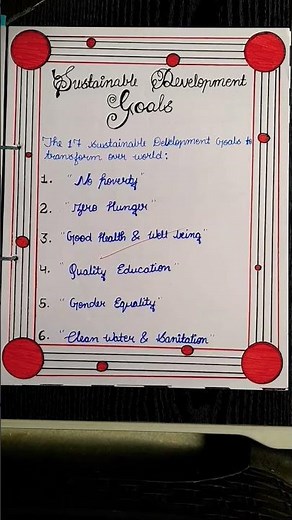 Sustainable Development
Goals
The 17 Sustainable Development Goals to
transform over world:
1. "No Poverty"
2. "Zero Hunger"
3. "Good Health & Well being"
4. "Quality Education"
5. "Gender Equality"
6. "Clean Water & Sanitation"